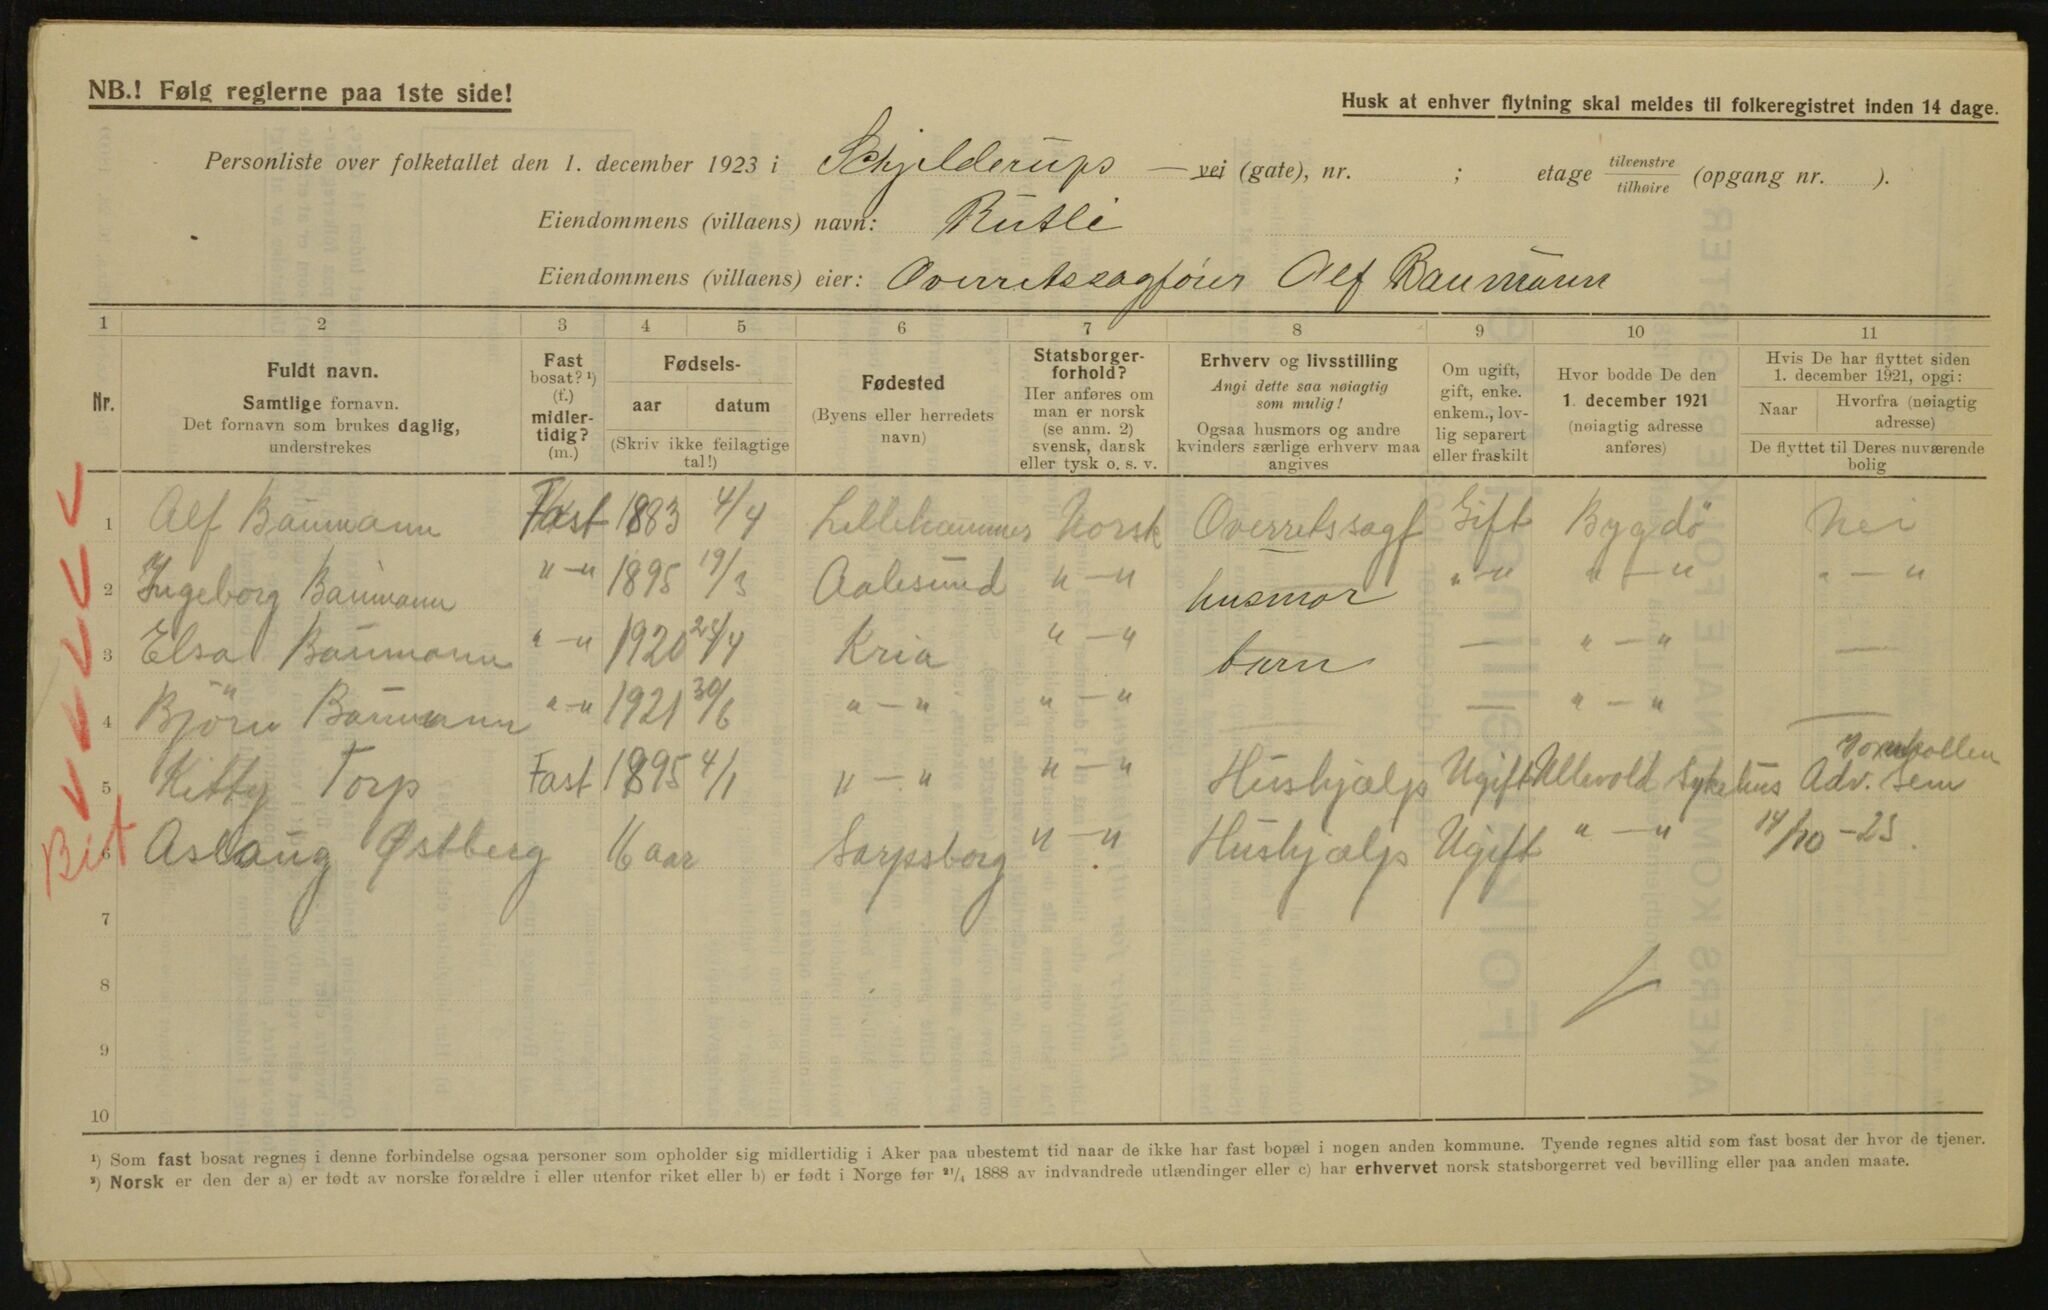 NB.! Følg reglerne paa 1ste side!
Husk at enhver flytning skal meldes til folkeregistret inden 14 dage.
Personliste over folketallet den 1. december 1923 i Schjelderups — vei (gate), nr. ; etage tilvenstre / tilhøire (opgang nr. ).
Eiendommens (villaens) navn: Rutli
Eiendommens (villaens) eier: Overretssagfører Alf Baumann
1 2 3 4 5 6 7 8 9 10 11
Nr.
Fuldt navn.
Samtlige fornavn.
Det fornavn som brukes daglig,
understrekes
Fast
bosat? ¹)
(f.)
midler-
tidig?
(m.)
Fødsels-
aar datum
(Skriv ikke feilagtige
tal!)
Fødested
(Byens eller herredets
navn)
Statsborger-
forhold?
Her anføres om
man er norsk
(se anm. 2)
svensk, dansk
eller tysk o. s. v.
Erhverv og livsstilling
Angi dette saa nøiagtig
som mulig!
Ogsaa husmors og andre
kvinders særlige erhverv maa
angives
Om ugift,
gift, enke.
enkem., lov-
lig separert
eller fraskilt
Hvor bodde De den
1. december 1921
(nøiagtig adresse
anføres)
Hvis De har flyttet siden
1. december 1921, opgi:
Naar Hvorfra (nøiagtig
adresse)
De flyttet til Deres nuværende
bolig
1 Alf Baumann Fast 1883 4/4 Lillehammer Norsk Overretssagf Gift Bygdö Nei
2 Ingeborg Baumann " — " 1895 19/3 Aalesund " — " husmor " — " " — " " — "
3 Elsa Baumann " — " 1920 /4 Kria " — " barn — " — " —
4 Björn Baumann " — " 1921 30/6 " — " " — " — " — " —
5 Kitty Torp Fast 1895 4/1 " — " " — " Hushjælp Ugift Ullevold Sykehus Adv. Sem
6 Aslaug Østberg 16 aar Sarpsborg " — " Hushjælp Ugift " — " 14/10 - 23.
Bit
7
8
9
10
¹) Som fast bosat regnes i denne forbindelse ogsaa personer som opholder sig midlertidig i Aker paa ubestemt tid naar de ikke har fast bopæl i nogen anden kommune. Tyende regnes altid som fast bosat der hvor de tjener.
²) Norsk er den der a) er født av norske forældre i eller utenfor riket eller b) er født i Norge før ²¹/₄ 1888 av indvandrede utlændinger eller c) har erhvervet norsk statsborgerret ved bevilling eller paa anden maate.